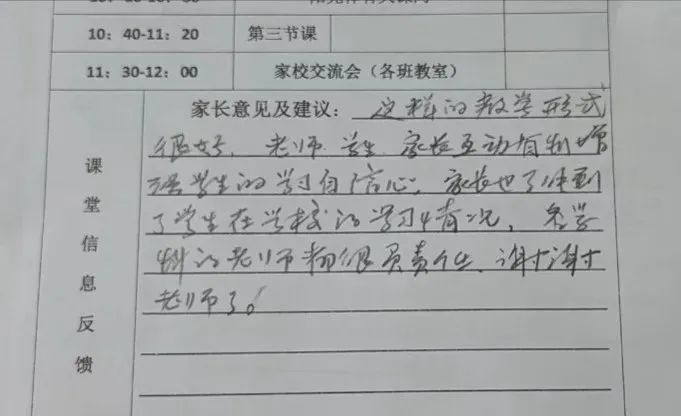 10：40-11：20 第三节课
11：30-12：00 家校交流会（各班教室）
课堂信息反馈
家长意见及建议：这样的教学形式
很好，老师、学生、家长互动有利增
强学生的学习自信心，家长也了解到
了学生在学校的学习情况，各学
科的老师都很负责任，谢谢
老师了。